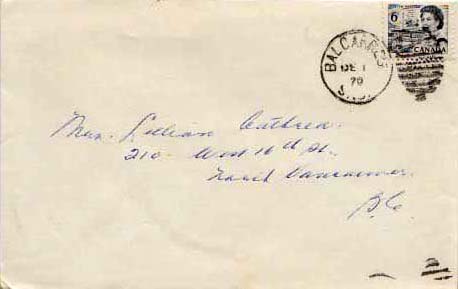 6
CANADA
BALCARRES
DE 1
70
SASK.
Mrs. Lillian
210 West 16th St.
North Vancouver
B.C.